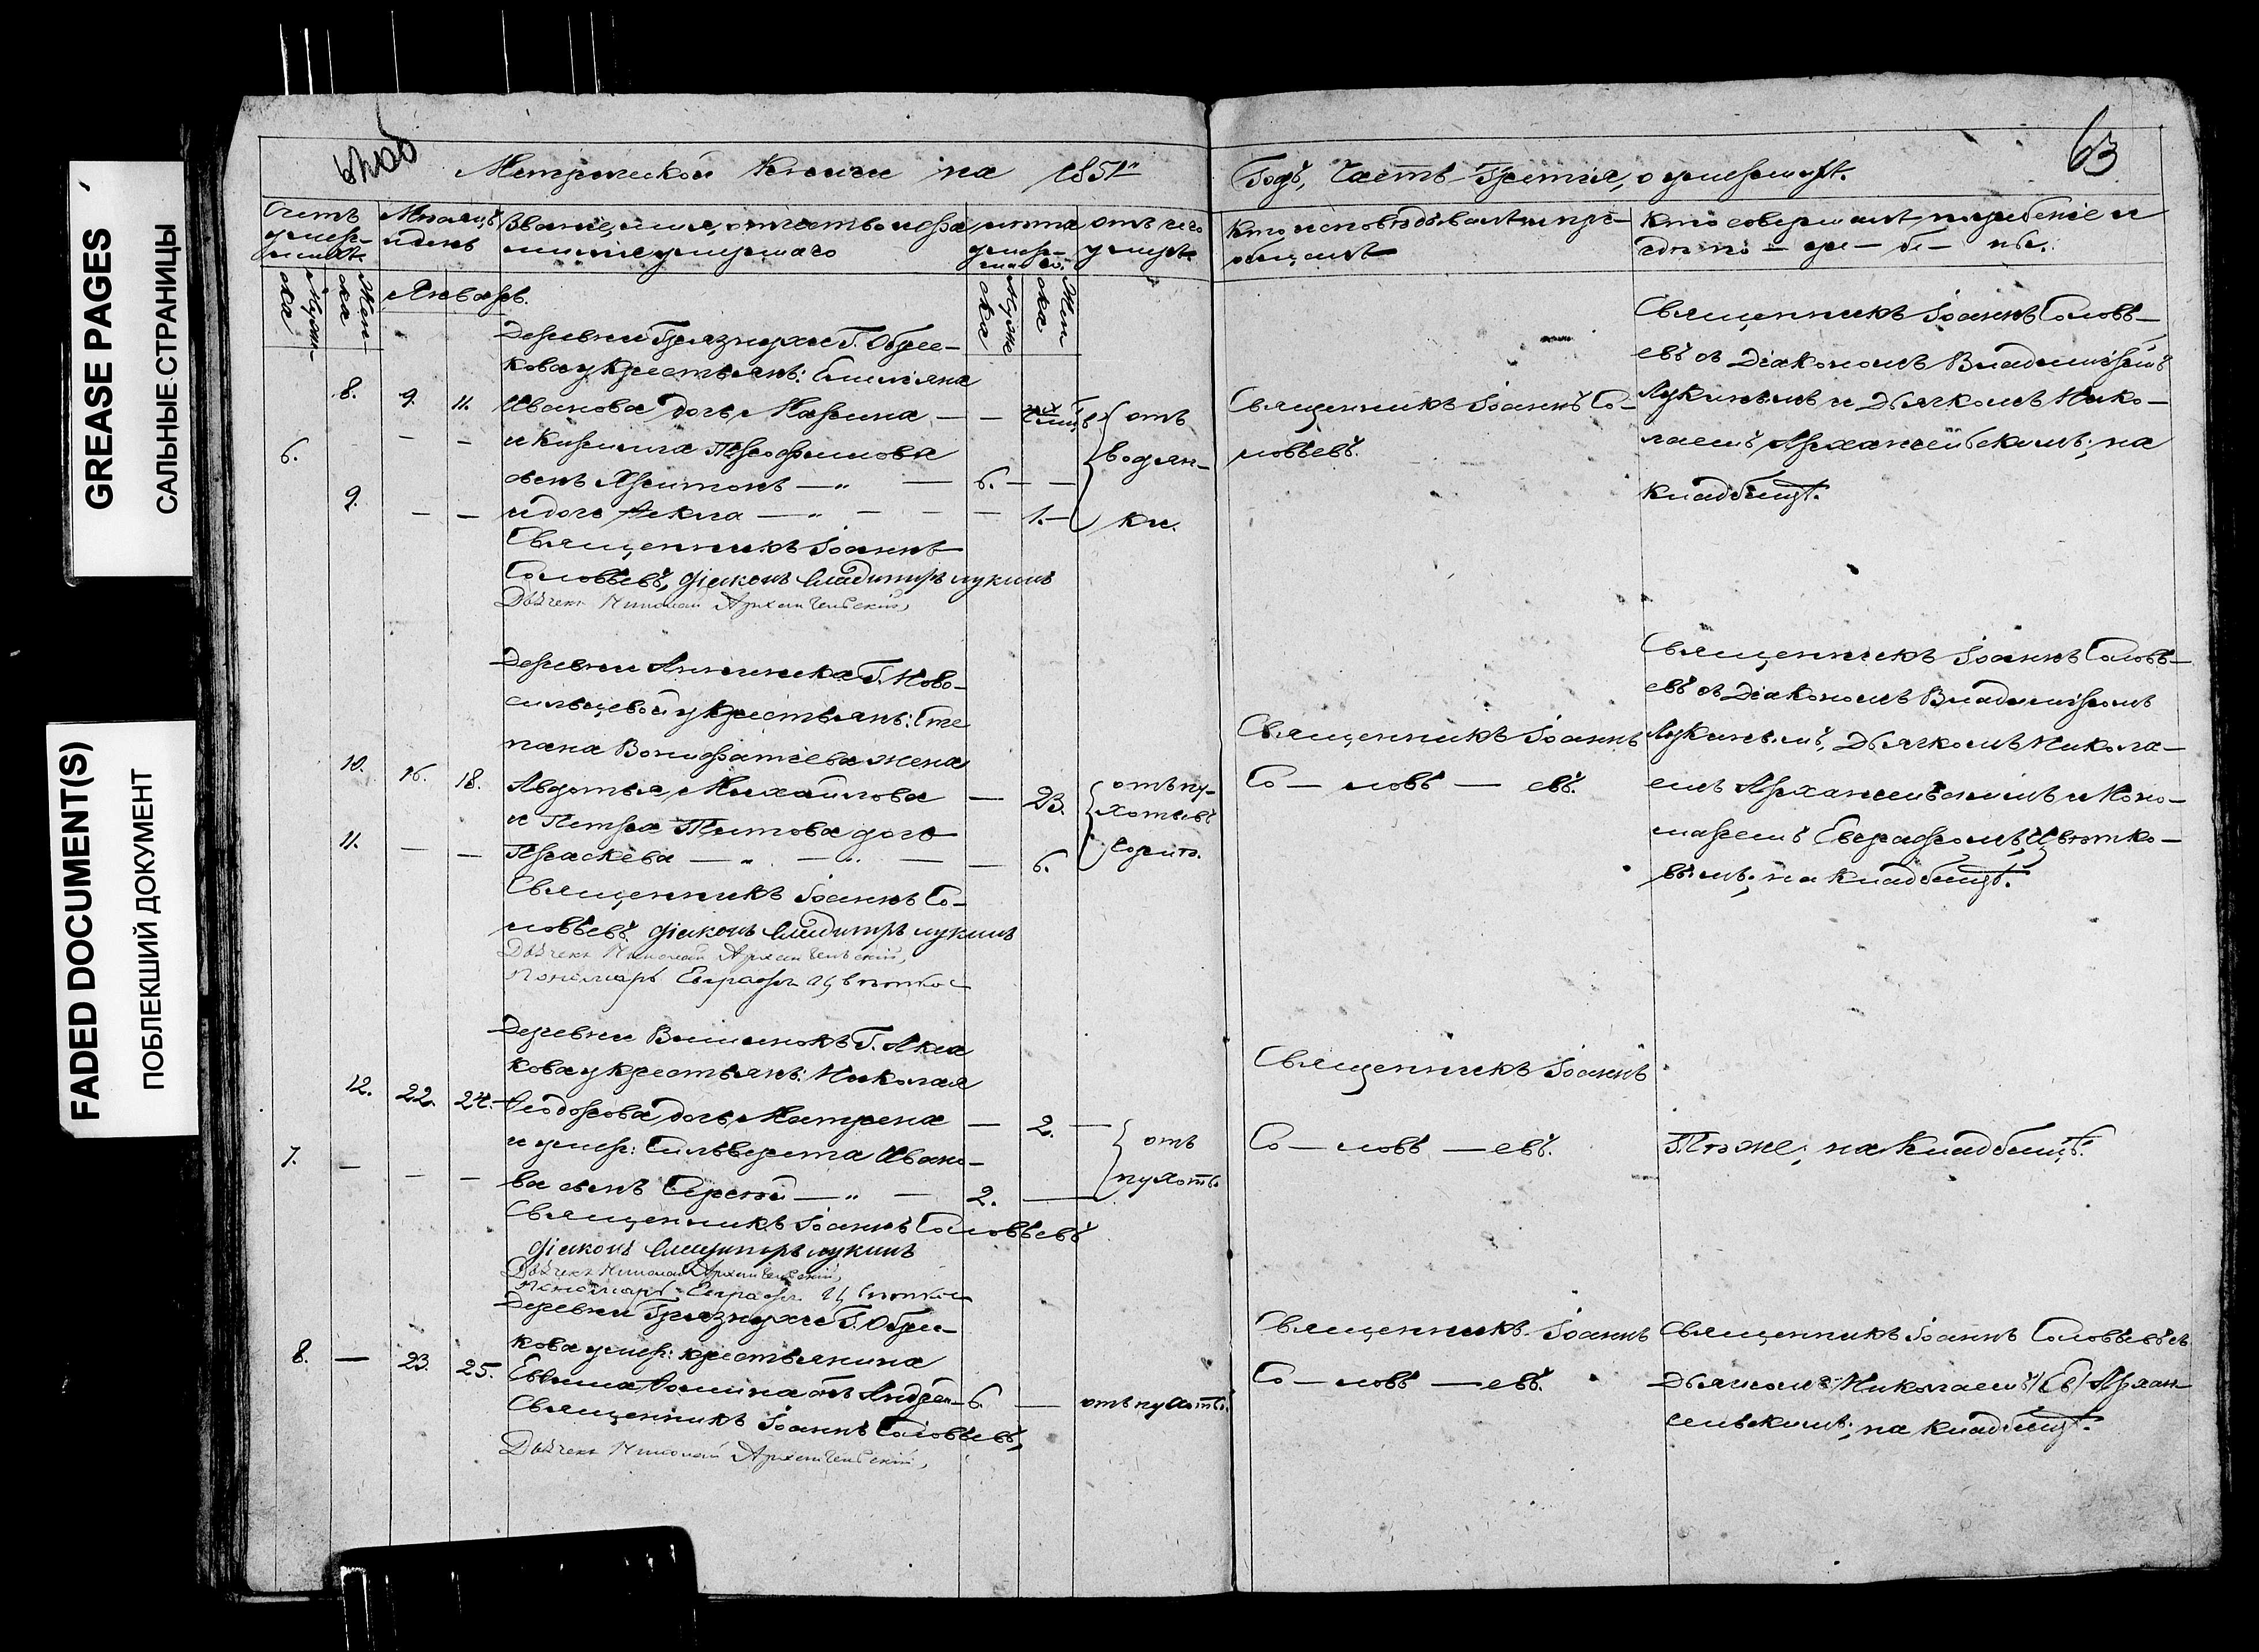 GREASE PAGES
САЛЬНЫЕ СТРАНИЦЫ
FADED DOCUMENT(S)
ПОБЛЕКШИЙ ДОКУМЕНТ
63
Метрической Книги на 1851й
Годъ, Часть Третія, о умершихъ.
Счетъ умер-шихъ.
Мѣсяцъ и день
Званіе, имя, отчество и фа
милія умершаго
лѣта умер-шаго.
отъ чего
умеръ
Кто исповѣдывалъ и прі-
общалъ
Кто совершалъ погребеніе и
гдѣ по — гре — бе — ны.
Мужи-ска
Жен-ска
Январь.
Муже ска
Жен ска
Деревни Грязнухи Г. Обрес-
кова у крестьянъ: Емиліяна
8. 9. 11. Иванова дочь Марина — —
и Кирилла Трофимова
6. — — сынъ Харитонъ — „ — 6. — —
9. — — и дочь Ѳекла — „ — — — 1. —
отъ
водян-
ки.
Священникъ Іоаннъ
Соловьевъ, діаконъ Владимиръ Лукинъ
Дьячекъ Николай Архангельскій,
Священникъ Іоаннъ Со-
ловьевъ.
Священникъ Іоаннъ Соловь-
евъ съ Діакономъ Владиміромъ
Лукинымъ и Дьячкомъ Нико-
лаемъ Архангельскимъ; на
кладбищѣ.
Деревни Аннинска Г. Ново-
сильцевой у крестьянъ: Сте
пана Вонифатіева жена
10. 16. 18. Авдотья Михайлова — 23.
и Петра Титова дочь
11. — — Праскева — „ — „ — — 6.
отъ чу-
хотывъ
горяч.
Священникъ Іоаннъ Со-
ловьевъ. діаконъ Владимиръ Лукинъ
Дьячекъ Николай Архангельскій,
Пономарь Евграфъ Цвѣтков
Священникъ Іоаннъ
Со — ловь — евъ.
Священникъ Іоаннъ Соловь-
евъ съ Діакономъ Владиміромъ
Лукинымъ, Дьячкомъ Никола-
емъ Архангельскимъ и Поно-
маремъ Евграфомъ Цвѣтко-
вымъ; на кладбищѣ.
Деревни Г. Акса
кова у крестьянъ: Николая
12. 22. 24. Ѳеодорова дочь Матрена — 2. —
и умер: Сильверста Ивано-
7. — — — ва сынъ Сергей — „ — 2. —
отъ
чухотъ.
Священникъ Іоаннъ Соловьевъ
діаконъ Владимиръ Лукинъ
Дьячекъ Николай Архангельскій,
Пономарь Евграфъ Цвѣтков
Священникъ Іоаннъ
Со — ловь — евъ.
Тѣже; на кладбищѣ.
Деревни Грязнухи Г. Обрес-
кова умер: крестьянина
8. — 23. 25. Евтина Ѳомина сынъ Андрей — 6. — отъ чухотъ.
Священникъ Іоаннъ Соловьевъ,
Дьячекъ Николай Архангельскій,
Священникъ Іоаннъ
Со — ловь — евъ.
Священникъ Іоаннъ Соловьевъ съ
Дьячкомъ Николаемъ Архан-
гельскимъ; на кладбищѣ.